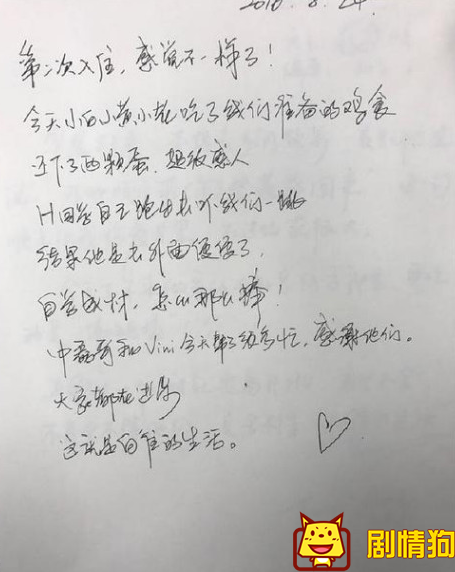 2018.8.24.
第二次入住，感觉不一样了！
今天小白小黄小花吃了我们准备的鸡食
还下了两颗蛋，超级感人
H同学自己跑出去吓我们一跳
结果他是去外面便便了，
自学成材，怎么那么棒！
中磊哥和Vini今天帮了很多忙，感谢他们。
大家都在进步
这就是向往的生活。
剧情狗